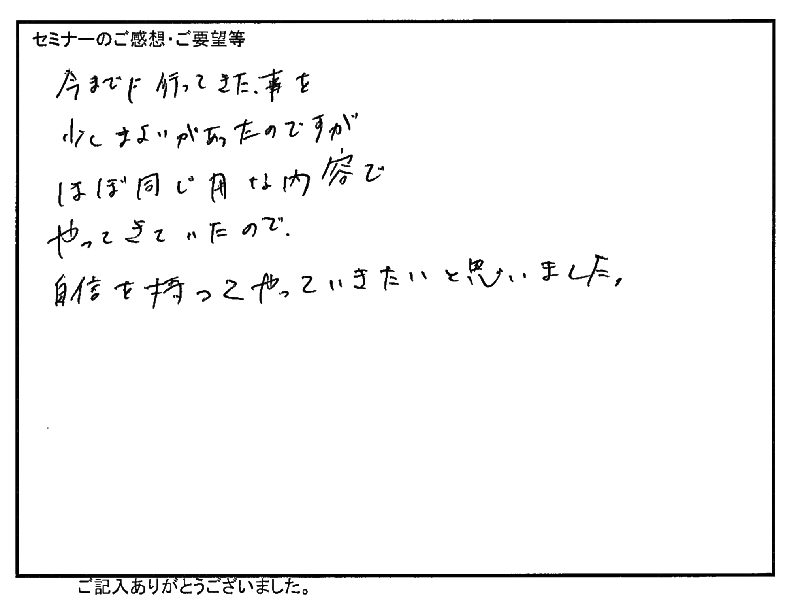 セミナーのご感想・ご要望等
今までに行ってきた事を
少しまよいがあったのですが
ほぼ同じ用な内容で
やってきていたので、
自信を持ってやっていきたいと思いました。
ご記入ありがとうございました。